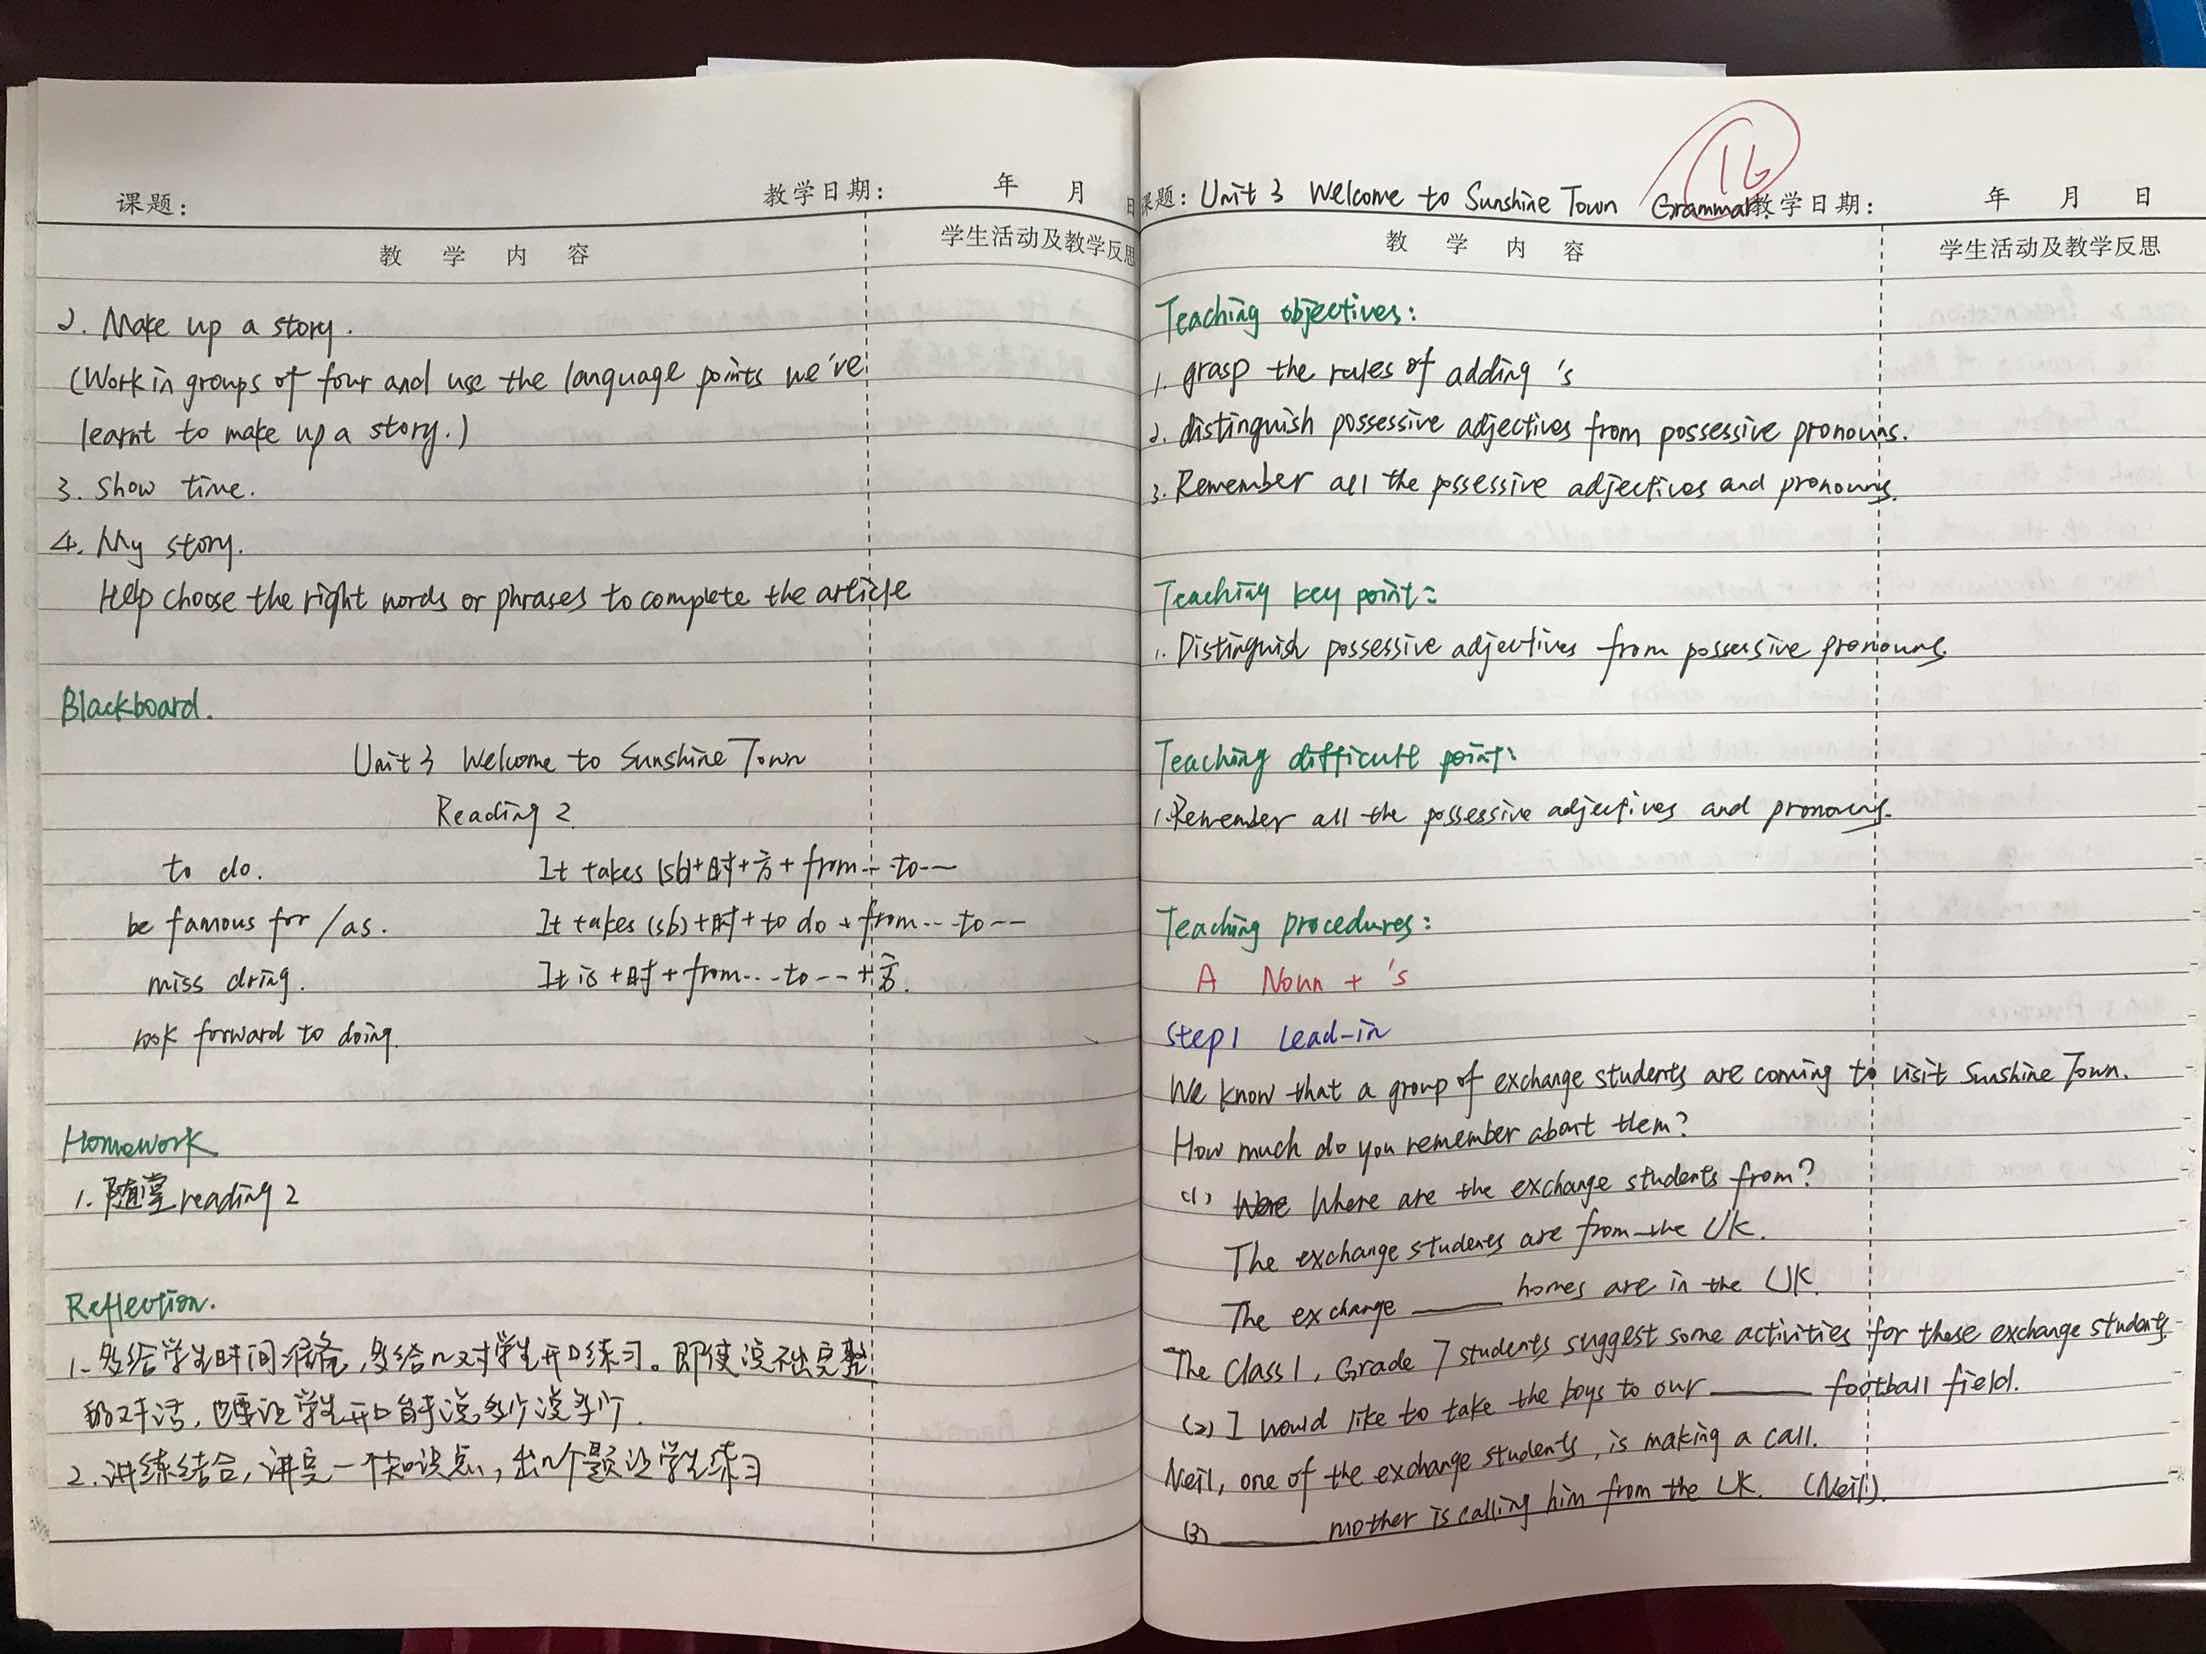 课题: 教学日期: 年 月 日
教 学 内 容 学生活动及教学反思
2. Make up a story.
(Work in groups of four and use the language points we've
learnt to make up a story.)
3. Show time.
4. My story.
Help choose the right words or phrases to complete the article
Blackboard.
Unit 3 Welcome to Sunshine Town
Reading 2
to do. It takes (sb)+时+方+from...to...
be famous for/as. It takes (sb)+时+to do+from...to...
miss doing. It is+时+from...to...+方.
look forward to doing.
Homework
1. 随堂 reading 2
Reflection.
1. 多给学生时间准备,多给时学生开口练习。即使说不出完整
的对话,也要让学生开口能说多少说多少.
2. 讲练结合,讲完一个知识点,出个题让学生练习
课题: Unit 3 Welcome to Sunshine Town Grammar. 教学日期: 年 月 日
16
教 学 内 容 学生活动及教学反思
Teaching objectives:
1. grasp the rules of adding 's
2. distinguish possessive adjectives from possessive pronouns.
3. Remember all the possessive adjectives and pronouns.
Teaching key point:
1. Distinguish possessive adjectives from possessive pronouns.
Teaching difficult point:
1. Remember all the possessive adjectives and pronouns.
Teaching procedures:
A Noun + 's
Step 1 Lead-in
We know that a group of exchange students are coming to visit Sunshine Town.
How much do you remember about them?
(1) Where are the exchange students from?
The exchange students are from the UK.
The exchange ______ homes are in the UK.
The Class 1, Grade 7 students suggest some activities for these exchange students.
(2) I would like to take the boys to our ______ football field.
Neil, one of the exchange students, is making a call.
(3) ______ mother is calling him from the UK. (Neil).